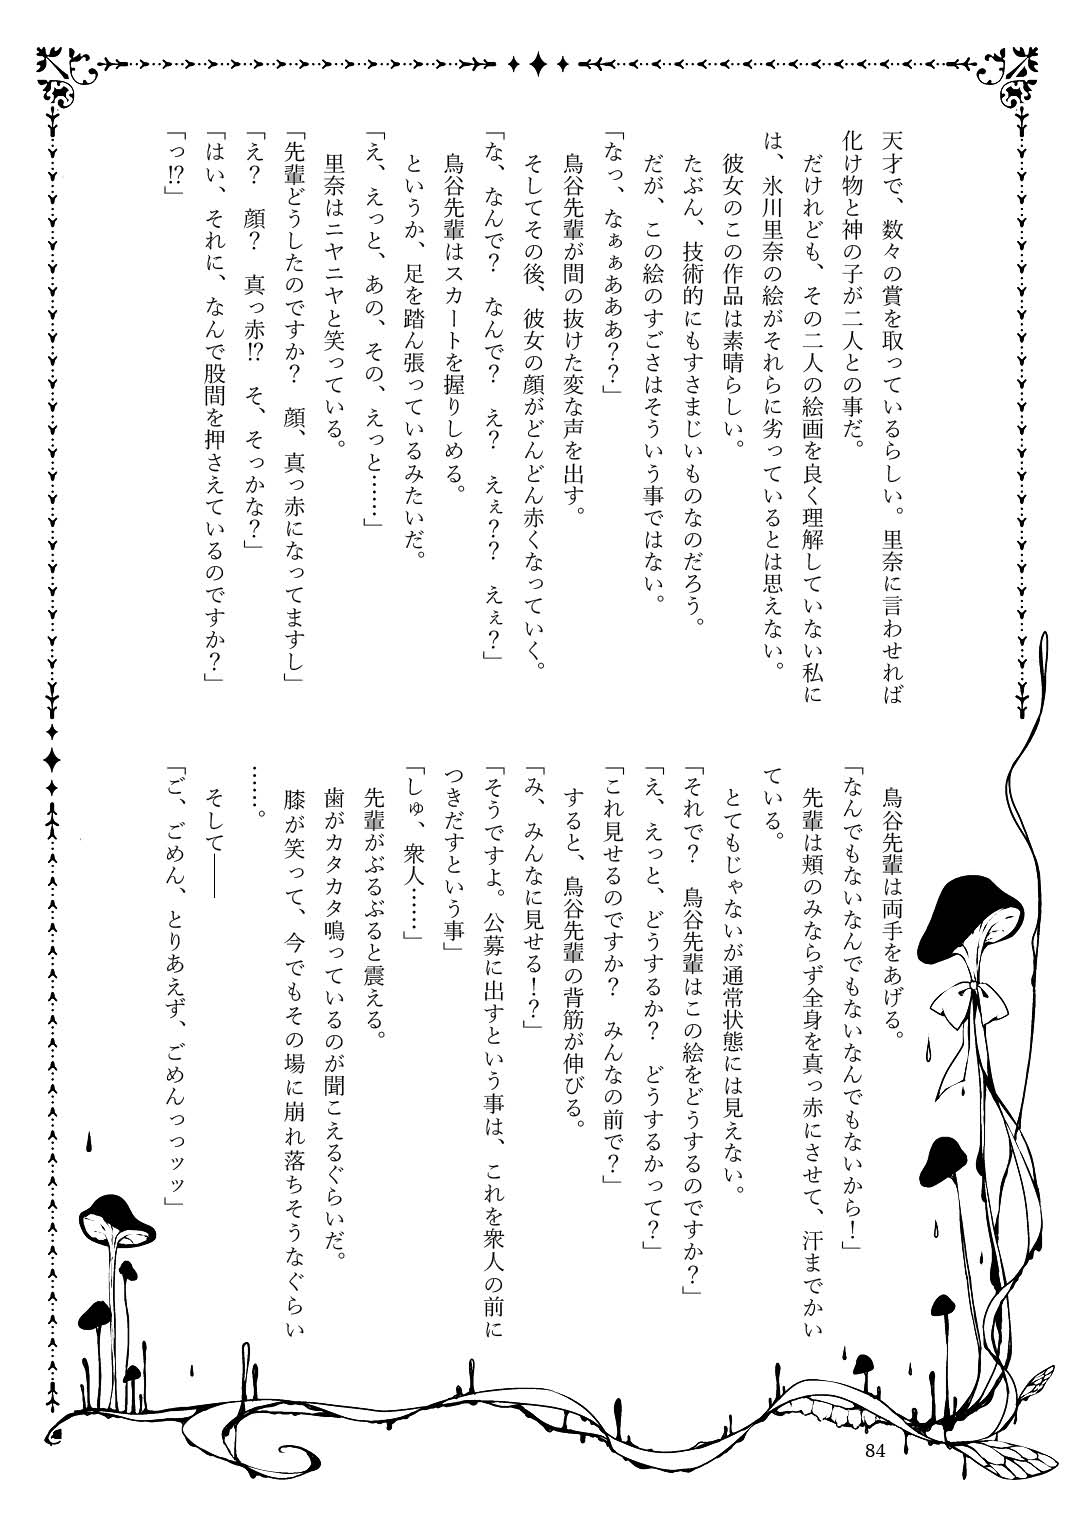 天才で、数々の賞を取っているらしい。里奈に言わせれば
化け物と神の子が二人との事だ。
　だけれども、その二人の絵画を良く理解していない私に
は、氷川里奈の絵がそれらに劣っているとは思えない。
　彼女のこの作品は素晴らしい。
　たぶん、技術的にもすさまじいものなのだろう。
　だが、この絵のすごさはそういう事ではない。
「なっ、なぁぁあああ？？」
　鳥谷先輩が間の抜けた変な声を出す。
　そしてその後、彼女の顔がどんどん赤くなっていく。
「な、なんで？　なんで？　え？　えぇ？？　えぇ？」
　鳥谷先輩はスカートを握りしめる。
　というか、足を踏ん張っているみたいだ。
「え、えっと、あの、その、えっと……」
　里奈はニヤニヤと笑っている。
「先輩どうしたのですか？　顔、真っ赤になってますし」
「え？　顔？　真っ赤⁉　そ、そっかな？」
「はい、それに、なんで股間を押さえているのですか？」
「っ⁉」
　鳥谷先輩は両手をあげる。
「なんでもないなんでもないなんでもないから！」
　先輩は頬のみならず全身を真っ赤にさせて、汗までかい
ている。
　とてもじゃないが通常状態には見えない。
「それで？　鳥谷先輩はこの絵をどうするのですか？」
「え、えっと、どうするか？　どうするかって？」
「これ見せるのですか？　みんなの前で？」
　すると、鳥谷先輩の背筋が伸びる。
「み、みんなに見せる！？」
「そうですよ。公募に出すという事は、これを衆人の前に
つきだすという事」
「しゅ、衆人……」
　先輩がぶるぶると震える。
　歯がカタカタ鳴っているのが聞こえるぐらいだ。
　膝が笑って、今でもその場に崩れ落ちそうなぐらい
……。
　そして――
「ご、ごめん、とりあえず、ごめんっっッッ」
84